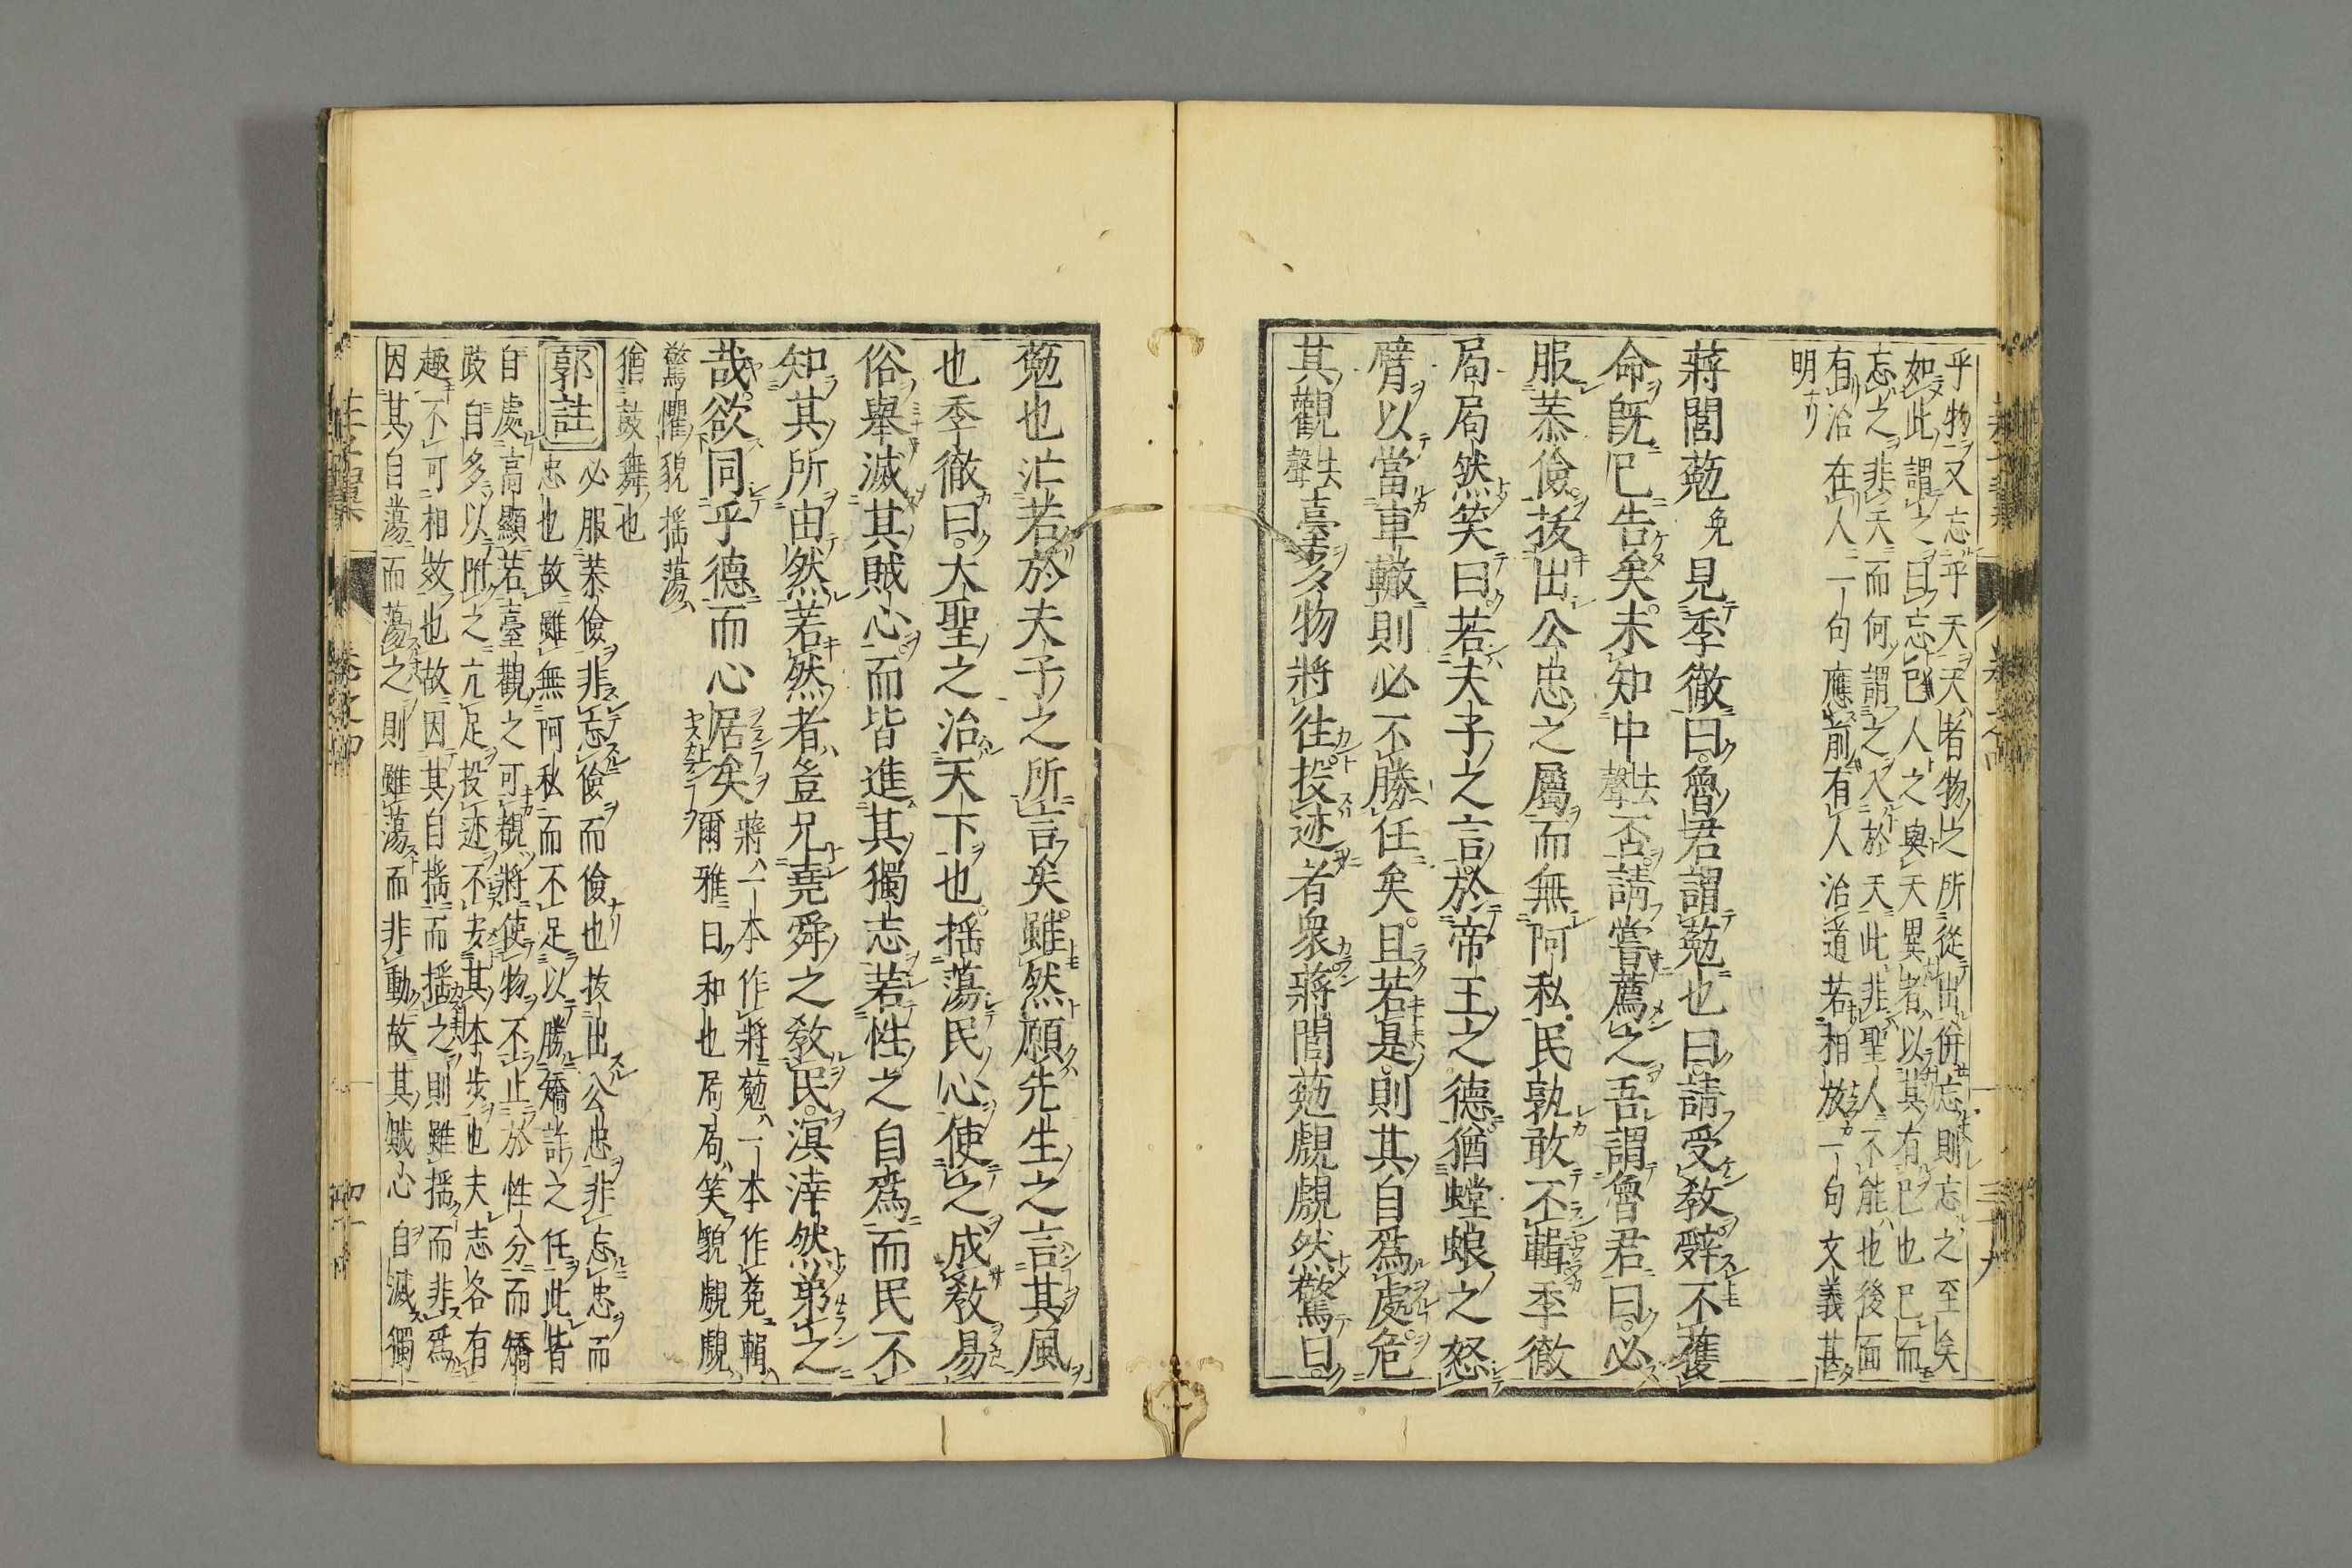 乎物又忘乎天天者物之所從出併忘則忘之至矣
如此謂之曰忘已人之與天異者以其有已也已而
忘之非天而何謂之入於天此非聖人不能也後面
有治在人一句應前有人治道若相放一句文義甚
明
蔣閭葂免見季徹曰魯君謂葂也曰請受敎辭不獲
命旣已告矣未知中去聲否請嘗薦之吾謂魯君曰必
服恭儉拔出公忠之屬而無阿私民孰敢不輯季徹
局局然笑曰若夫子之言於帝王之德猶螳蜋之怒
臂以當車轍則必不勝任矣且若是則其自爲處危
其觀去聲臺多物將往投迹者衆蔣閭葂覤覤然驚曰
葂也汒若於夫子之所言矣雖然願先生之言其風
也季徹曰大聖之治天下也搖蕩民心使之成敎易
俗舉滅其賊心而皆進其獨志若性之自爲而民不
知其所由然若然者豈兄堯舜之敎民溟涬然弟之
哉欲同乎德而心居矣蔣一本作將葂一本作莬輯
爾雅曰和也局局笑貌覤覤
驚懼貌搖蕩
猶鼓舞也
郭註必服恭儉非忘儉而儉也拔出公忠非忘忠而
忠也故雖無阿私而不足以勝矯詐之任此皆
自處高顯若臺觀之可覩將使物不止於性分而矯
跂自多以附之亢足投迹不安其本步也夫志各有
趣不可相效也故因其自搖而搖之則雖搖而非爲
因其自蕩而蕩之則雖蕩而非動故其賊心自滅獨
莊子翼 卷之四 四十